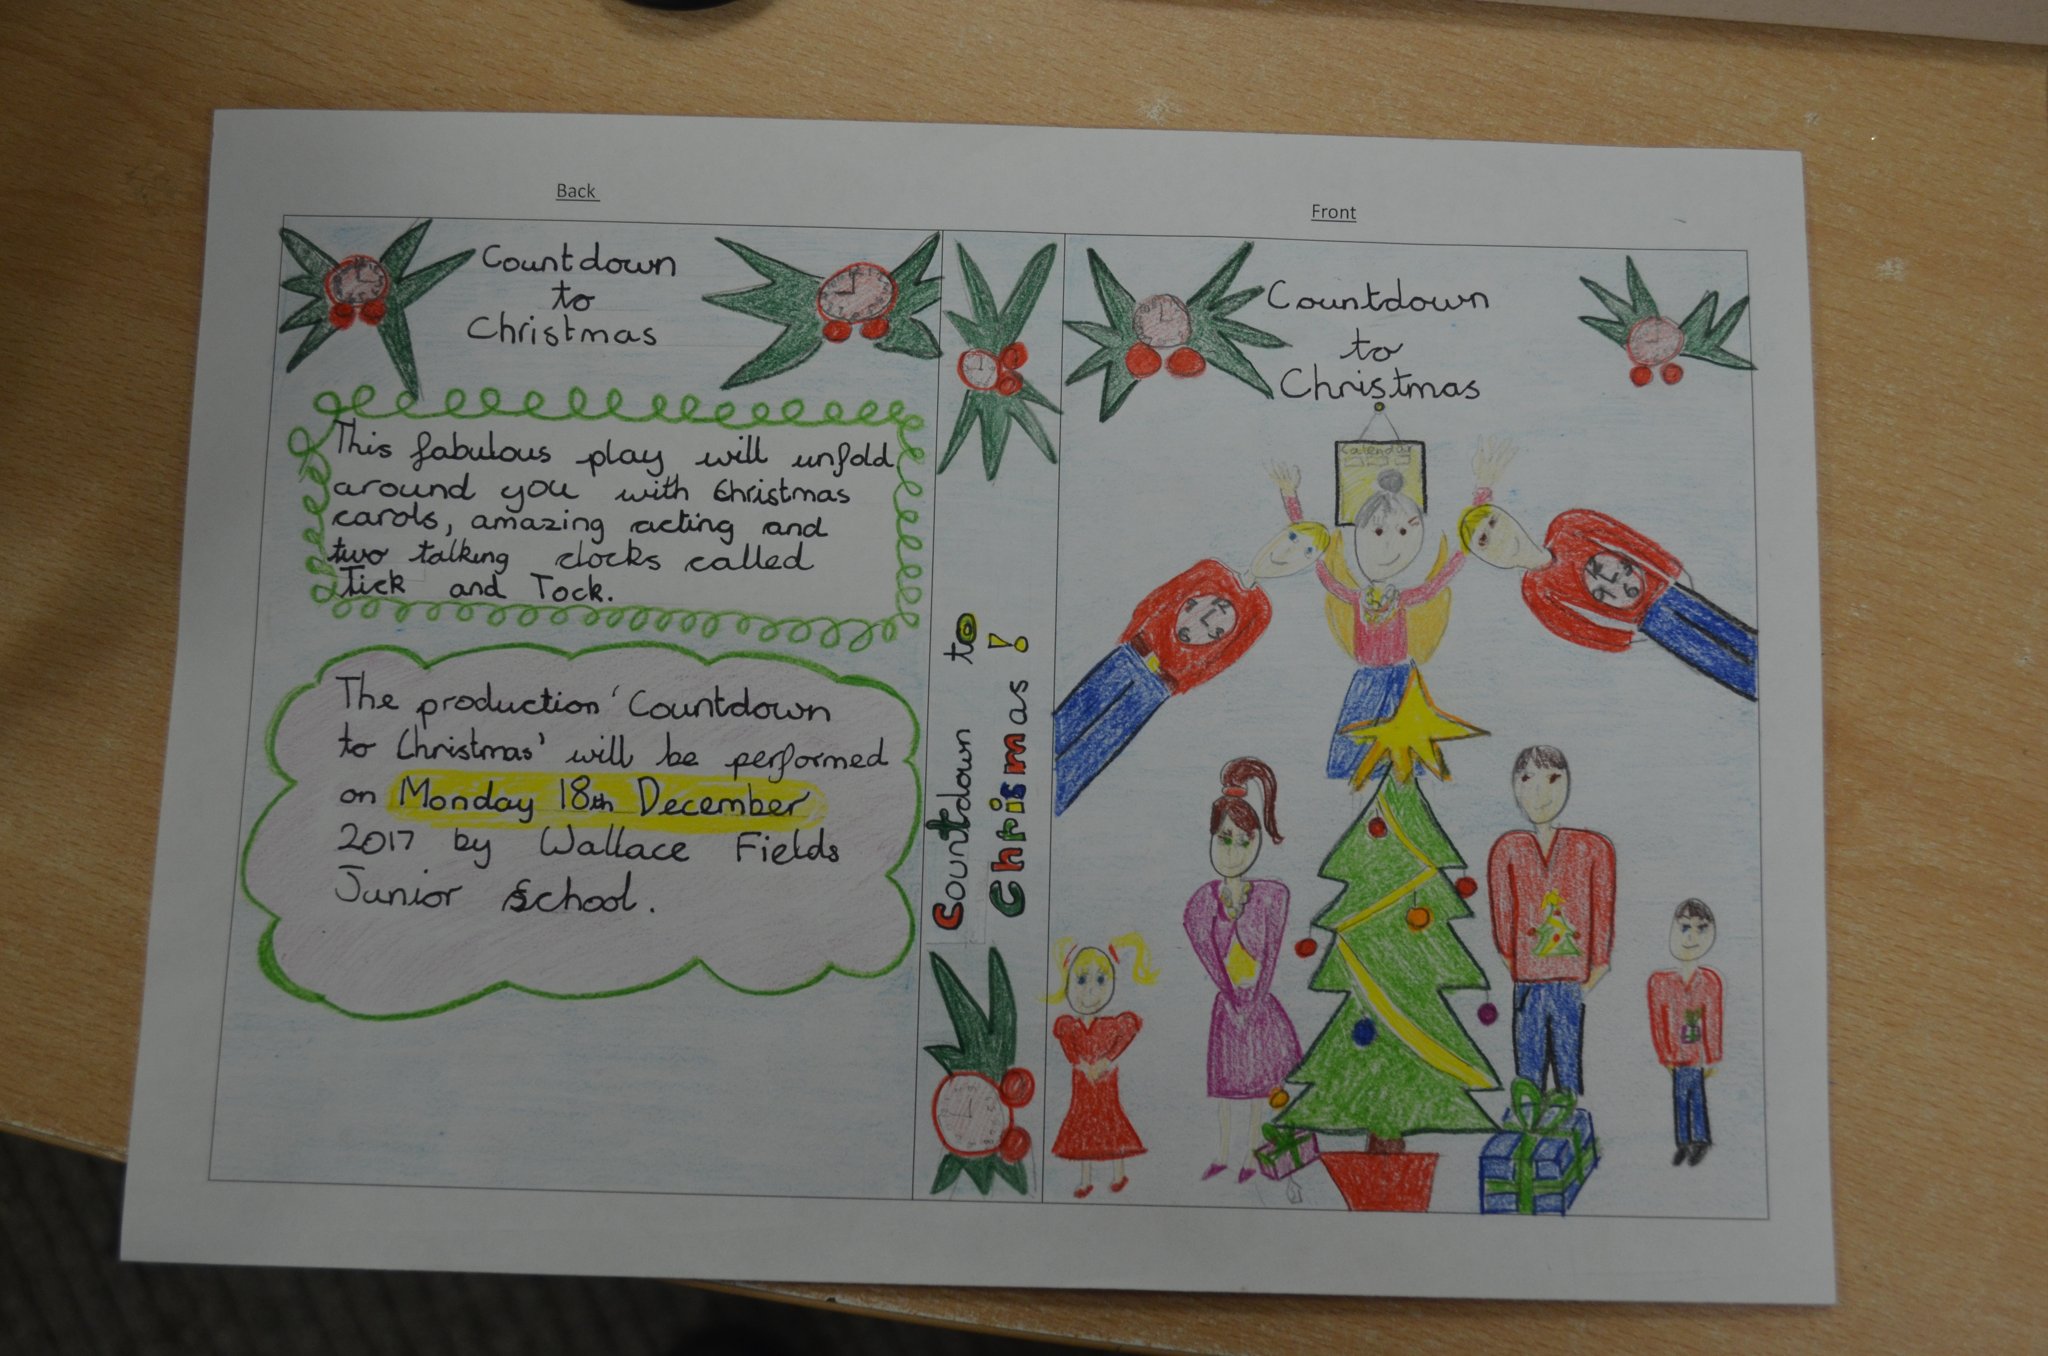 Back
Front
Countdown
to
Christmas
This fabulous play will unfold
around you with Christmas
carols, amazing acting and
two talking clocks called
Tick and Tock.
The production 'Countdown
to Christmas' will be performed
on Monday 18th December
2017 by Wallace Fields
Junior School.
Countdown to
Chrismas!
Countdown
to
Christmas
Calendar
12
3
6
9